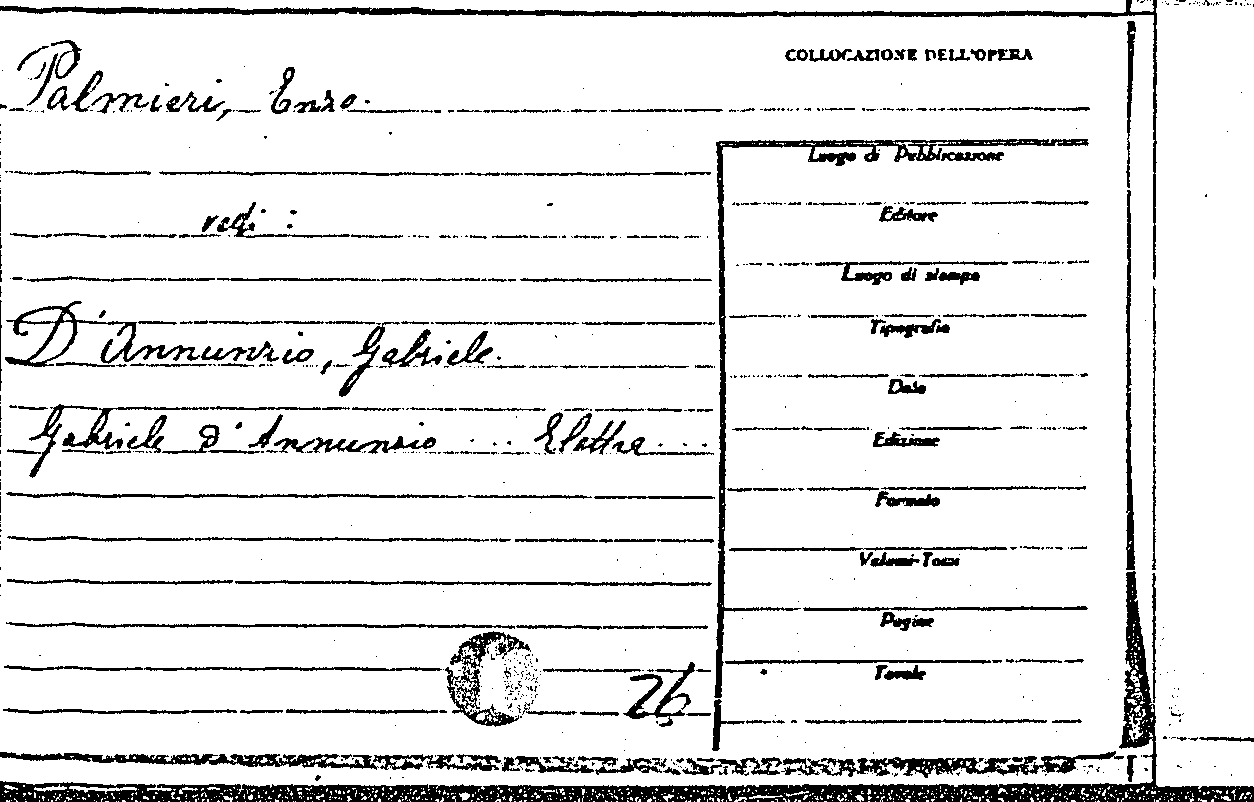 COLLOCAZIONE DELL'OPERA
Palmieri, Enzo.
vedi :
D'Annunzio, Gabriele.
Gabriele d'Annunzio ... Elettra ...
26
Luogo di Pubblicazione
Editore
Luogo di stampa
Tipografia
Data
Edizione
Formato
Volumi-Tomi
Pagine
Tavole